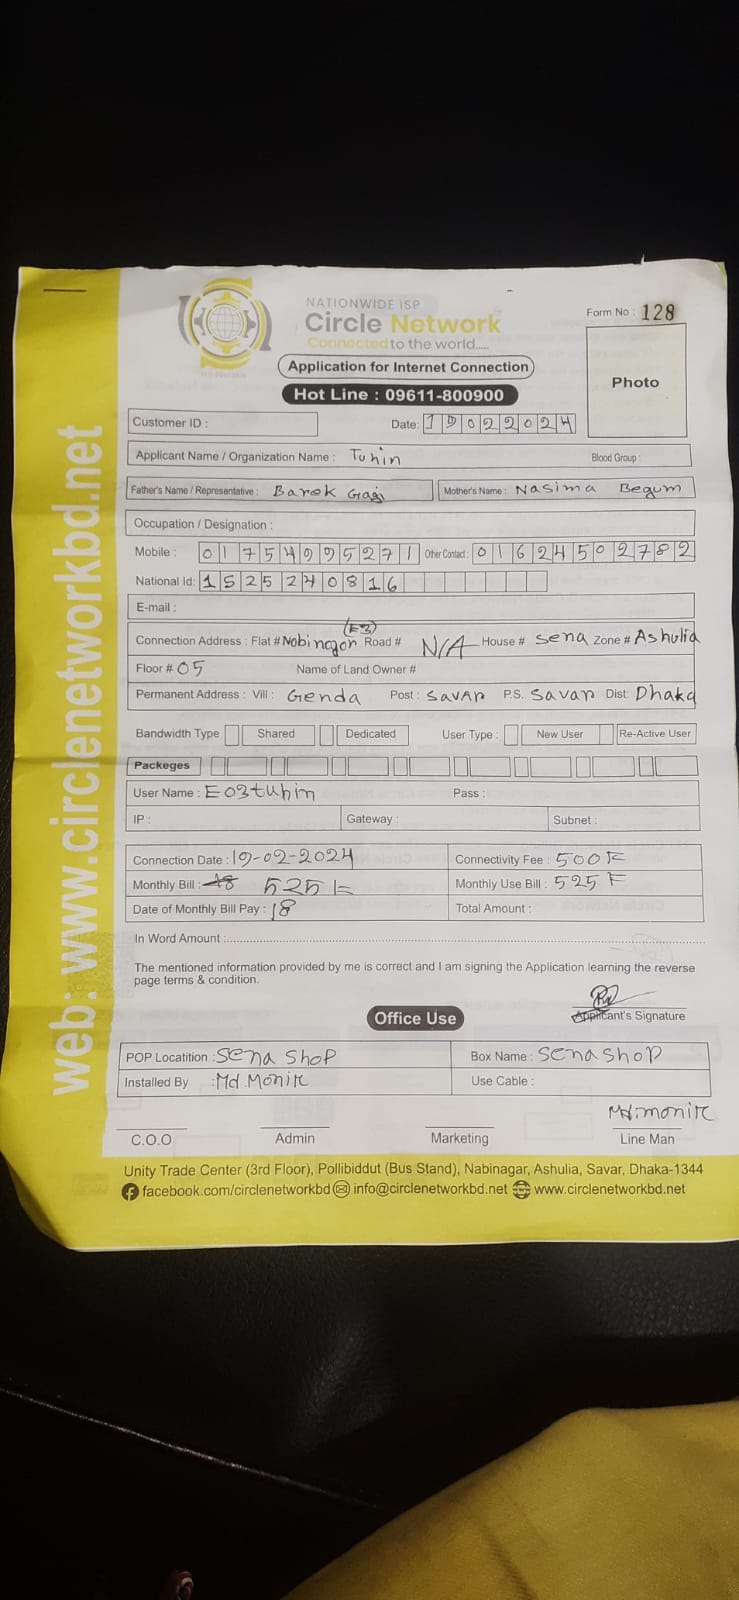 NATIONWIDE ISP
Circle Network
Connected to the world.....
Form No : 128
Application for Internet Connection
Hot Line : 09611-800900
Photo
Customer ID :
Date: 19022024
Applicant Name / Organization Name : Tuhin Blood Group :
Father's Name / Representative : Barek Gagi Mother's Name : Nasima Begum
Occupation / Designation :
Mobile : 01754995271 Other Contact : 01624502782
National Id: 1525240816
E-mail :
Connection Address : Flat # Nobinogor (E3) Road # N/A House # Sena Zone # Ashulia
Floor # 05 Name of Land Owner #
Permanent Address : Vill : Genda Post : Savar P.S. Savar Dist: Dhaka
Bandwidth Type Shared Dedicated User Type : New User Re-Active User
Packeges
User Name : E03tuhin Pass :
IP : Gateway : Subnet :
Connection Date : 19-02-2024 Connectivity Fee : 500
Monthly Bill : 525 Monthly Use Bill : 525
Date of Monthly Bill Pay : 18 Total Amount :
In Word Amount :
The mentioned information provided by me is correct and I am signing the Application learning the reverse
page terms & condition.
Applicant's Signature
Office Use
POP Locatition : Sena Shop Box Name : Sena Shop
Installed By : Md Monir Use Cable :
Md. monir
C.O.O Admin Marketing Line Man
Unity Trade Center (3rd Floor), Pollibiddut (Bus Stand), Nabinagar, Ashulia, Savar, Dhaka-1344
facebook.com/circlenetworkbd info@circlenetworkbd.net www.circlenetworkbd.net
web: www.circlenetworkbd.net